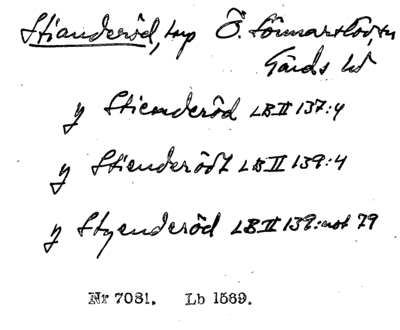 Stianderöd, torp Ö. Sönnarslöv, sn
Gärds hd
y Stienderöd LB II 137:4
y Stienderödt LB II 139:4
y Styenderöd LB II 139: not 79
Nr 7081. Lb 1569.